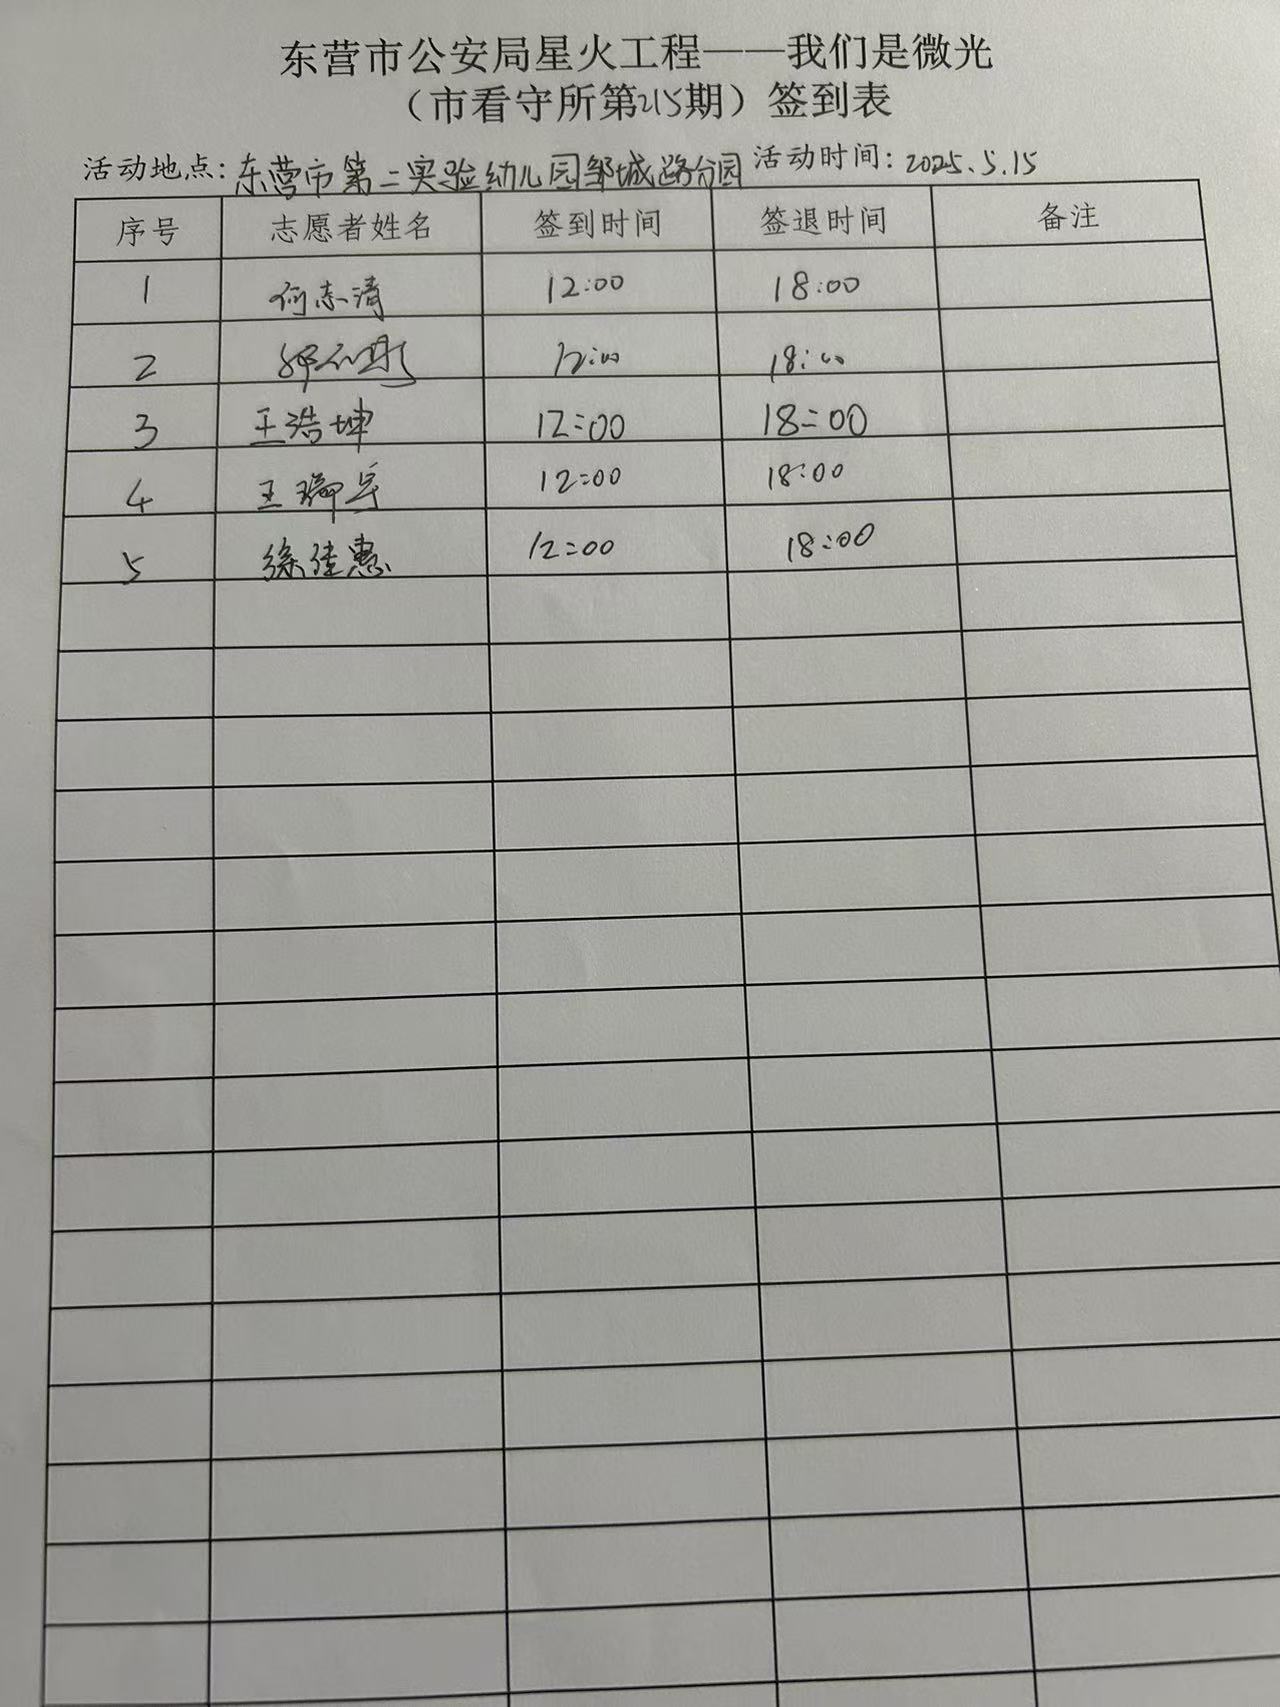 东营市公安局星火工程——我们是微光
（市看守所第215期）签到表
活动地点：东营市第二实验幼儿园邹城路分园 活动时间：2025.5.15
序号 志愿者姓名 签到时间 签退时间 备注
1 何志清 12:00 18:00
2 12:00 18:00
3 王浩坤 12:00 18:00
4 王瑞 12:00 18:00
5 徐佳惠 12:00 18:00